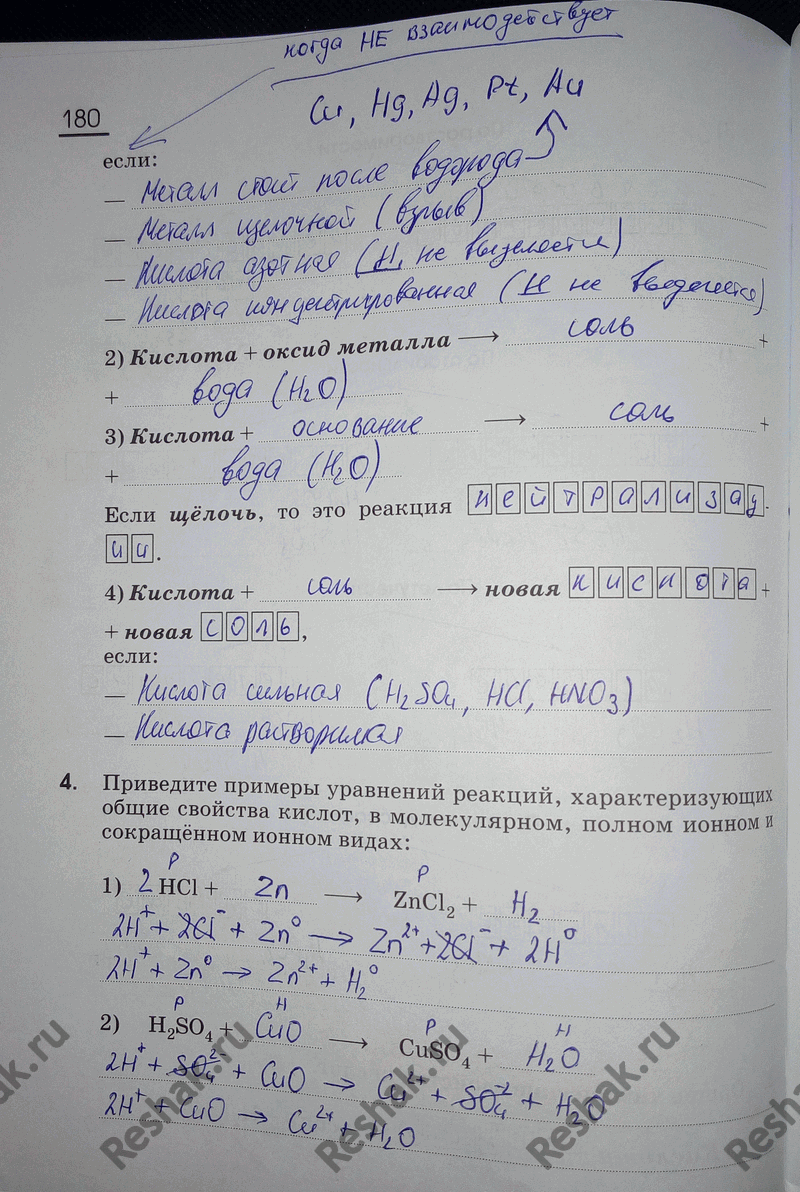 когда НЕ взаимодействует
Cu, Hg, Ag, Pt, Au
180
если:
— Металл стоит после водорода
— Металл щелочной (взрыв)
— Кислота азотная (H, не выделяется)
— Кислота концентрированная (H не выделяется)
2) Кислота + оксид металла → соль +
+ вода (H₂O)
3) Кислота + основание → соль +
+ вода (H₂O)
Если щёлочь, то это реакция нейтрализац-
ии.
4) Кислота + соль → новая кислота +
+ новая соль,
если:
— Кислота сильная (H₂SO₄, HCl, HNO₃)
— Кислота растворимая
4. Приведите примеры уравнений реакций, характеризующих
общие свойства кислот, в молекулярном, полном ионном и
сокращённом ионном видах:
Р Р
1) 2HCl + Zn → ZnCl₂ + H₂
2H⁺ + 2Cl⁻ + Zn⁰ → Zn²⁺ + 2Cl⁻ + 2H⁰
2H⁺ + Zn⁰ → Zn²⁺ + H₂⁰
Р Н Р Н
2) H₂SO₄ + CuO → CuSO₄ + H₂O
2H⁺ + SO₄²⁻ + CuO → Cu²⁺ + SO₄²⁻ + H₂O
2H⁺ + CuO → Cu²⁺ + H₂O
Reshak.ru Reshak.ru Reshak.ru Reshak.ru